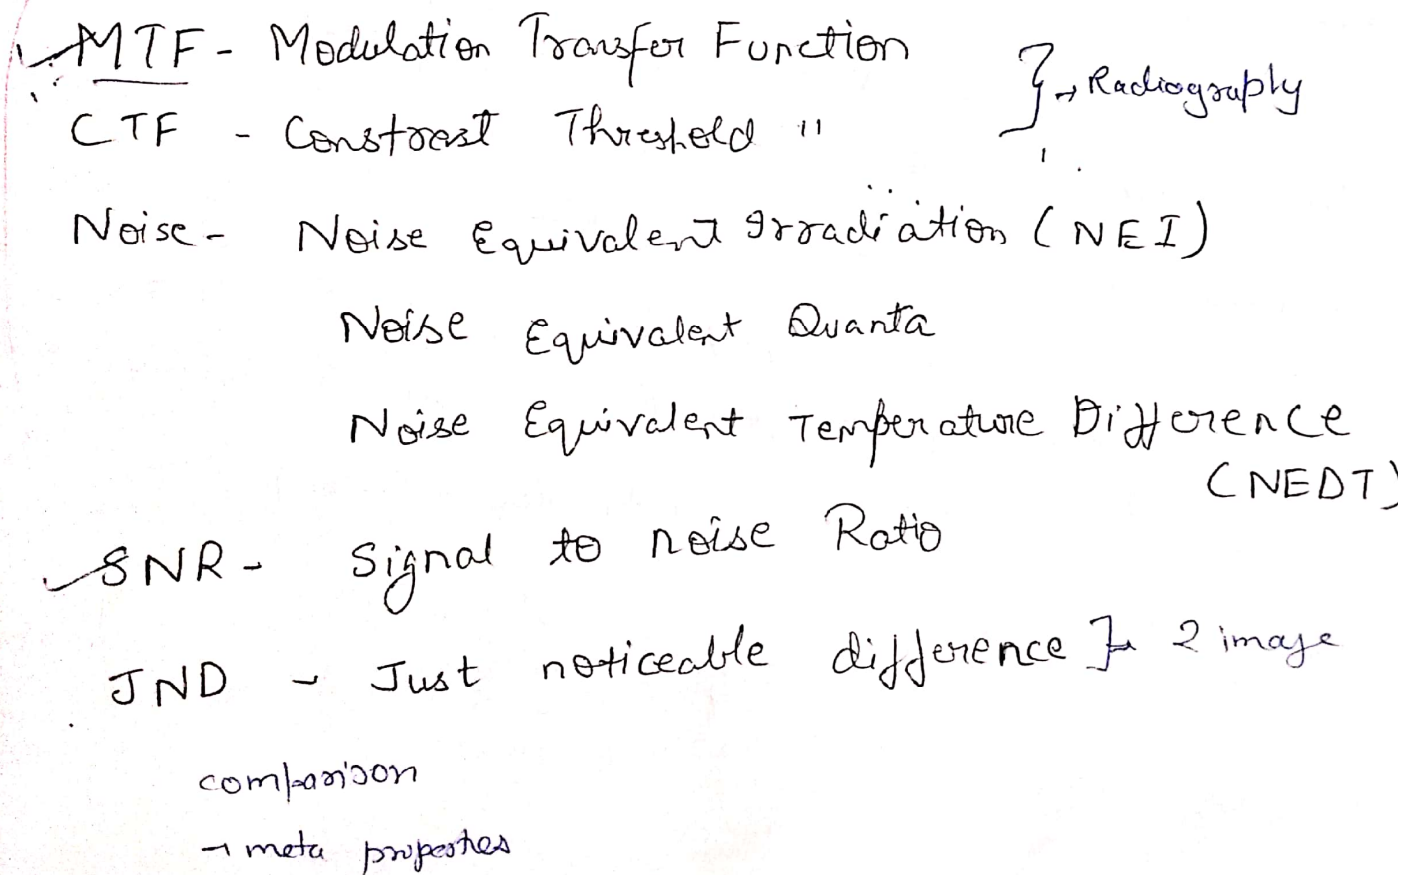 MTF - Modulation Transfer Function
CTF - Constrast Threshold "
} → Radiography
Noise - Noise Equivalent Irradiation (NEI)
Noise Equivalent Quanta
Noise Equivalent Temperature Difference
(NEDT)
SNR - Signal to noise Ratio
JND - Just noticeable difference } 2 image
comparison
→ meta properties